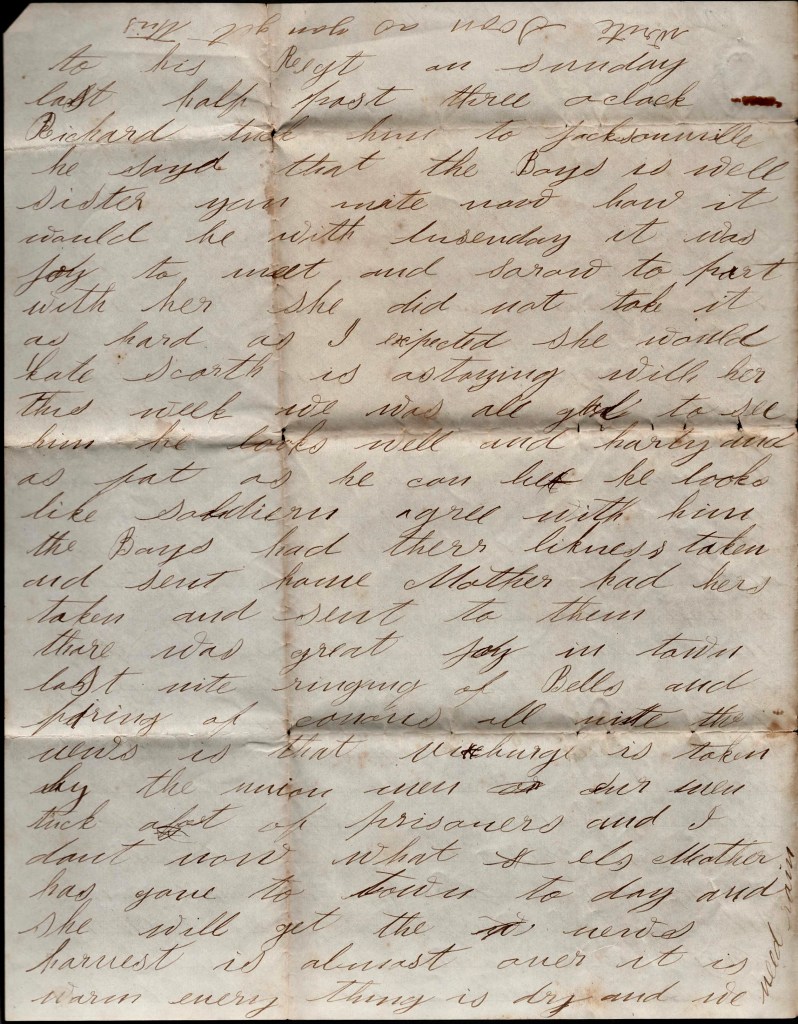 write Soon as you get this
to his Regt on sunday
last half past three oclock
Richard tuck him to Jacksonville
he sayd that the Boys is well
sister you mite now how it
would be with lusenday it was
joy to meet and sarow to part
with her she did not take it
as hard as I expected she would
kate Scorth is astaying with her
this week we was all glad to see
him he looks well and harty and
as fat as he can be he looks
like soldiern agree with him
the Boys had therr likness taken
and sent home Mother had hers
taken and sent to them
thare was great joy in town
last nite ringing of Bells and
firing of conons all nite the
news is that vicksburge is taken
by the union men our men
tuck alot of prisoners and I
dont now what els Mother
has gone to town to day and
she will get the news
harvest is almost over it is
warm every thing is dry and we
need rain